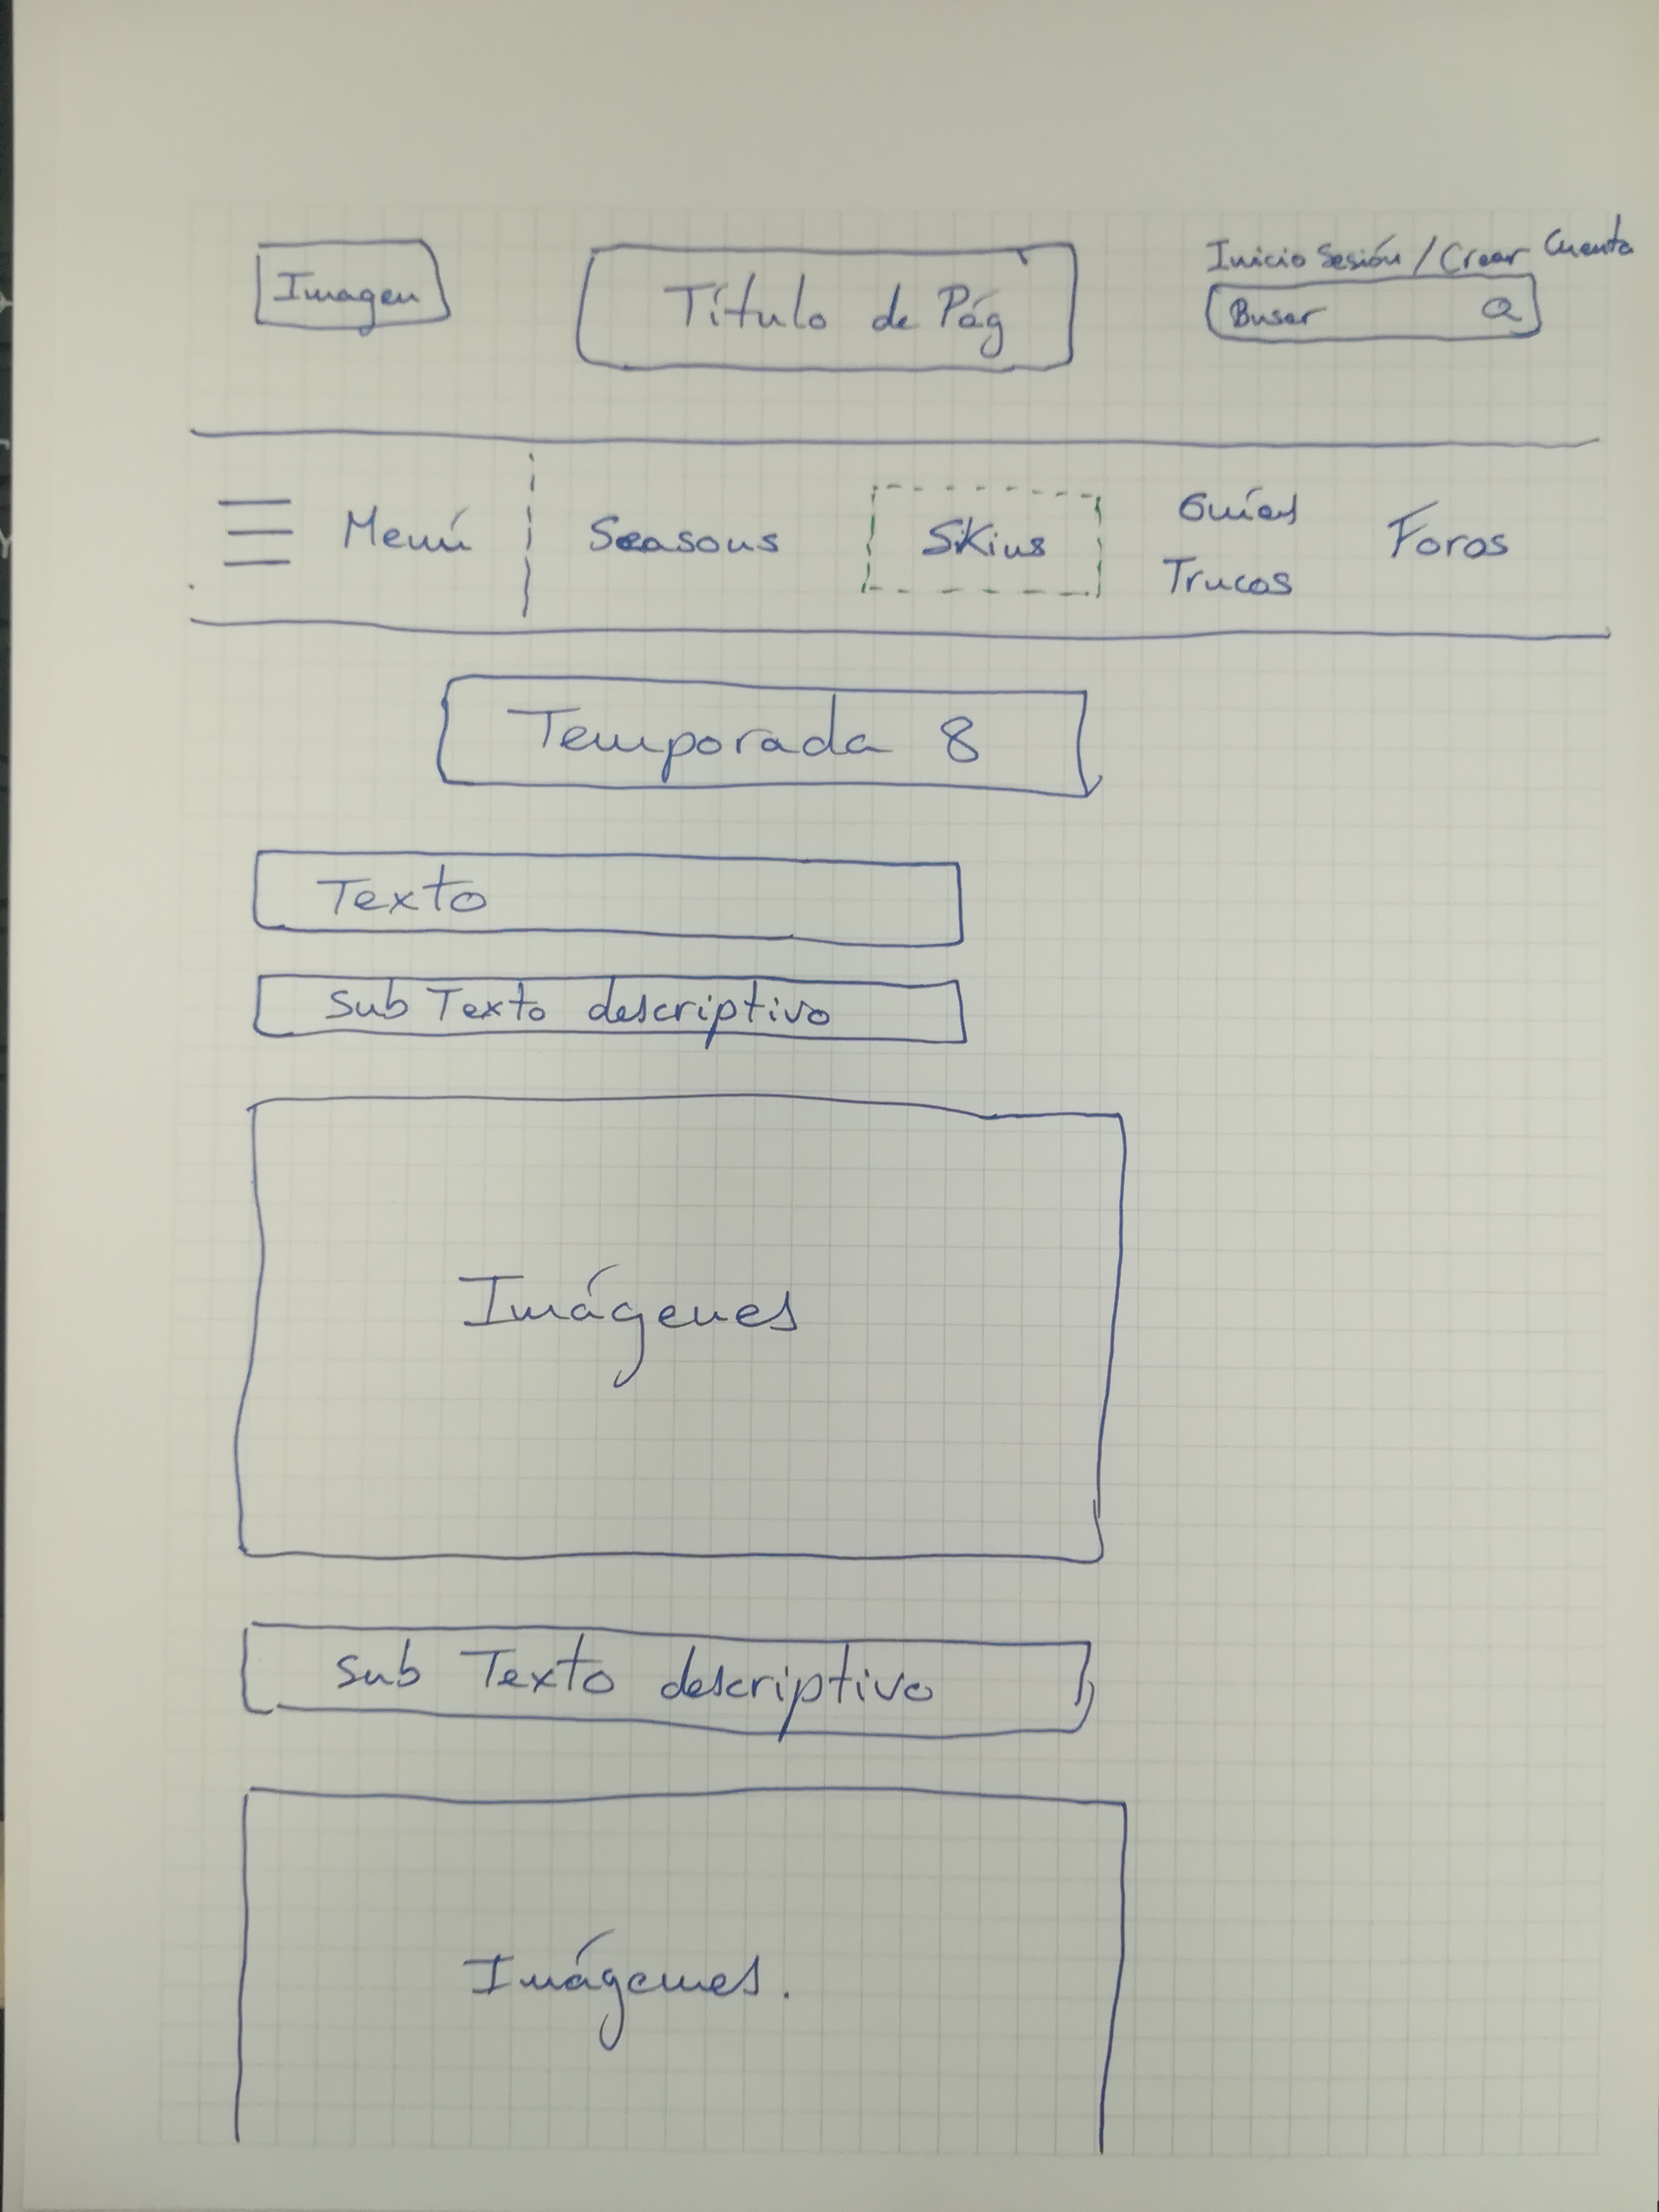 Imagen
Título de Pág
Inicio Sesión / Crear Cuenta
Busar
Menú
Seasons
Skins
Guías
Trucos
Foros
Temporada 8
Texto
Sub Texto descriptivo
Imágenes
Sub Texto descriptivo
Imágenes.